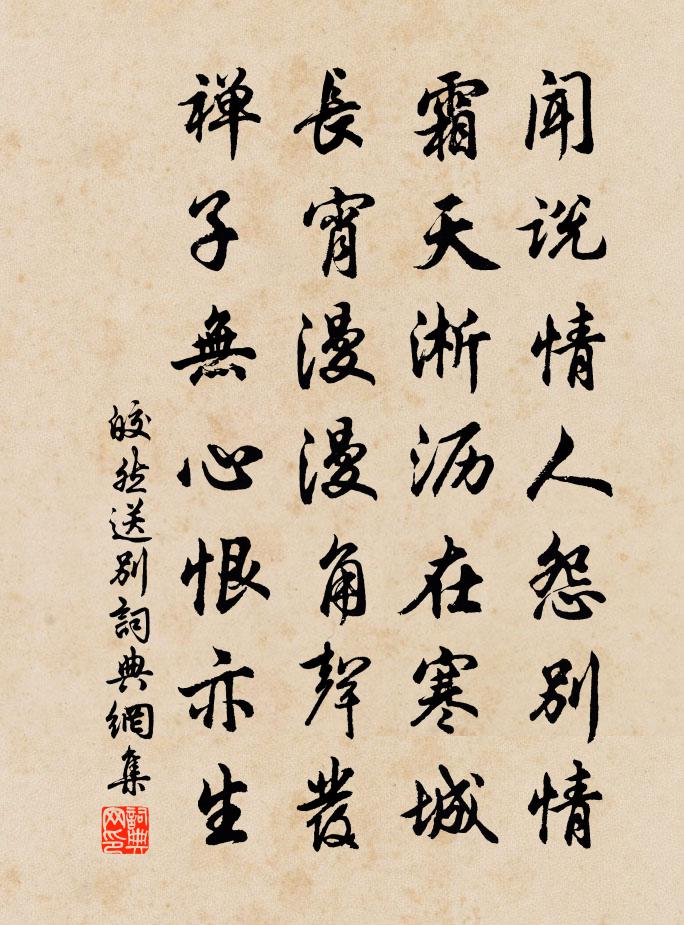 闻说情人怨别情
霜天淅沥在寒城
長宵漫漫角聲發
禅子無心恨亦生
皎然送别詞典網集
詞典网印